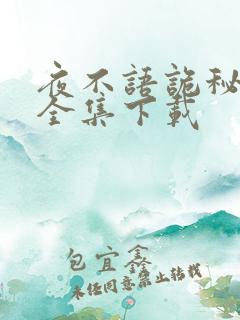 夜不語詭秘
全集下載
包宜鑫
未经同意禁止转载